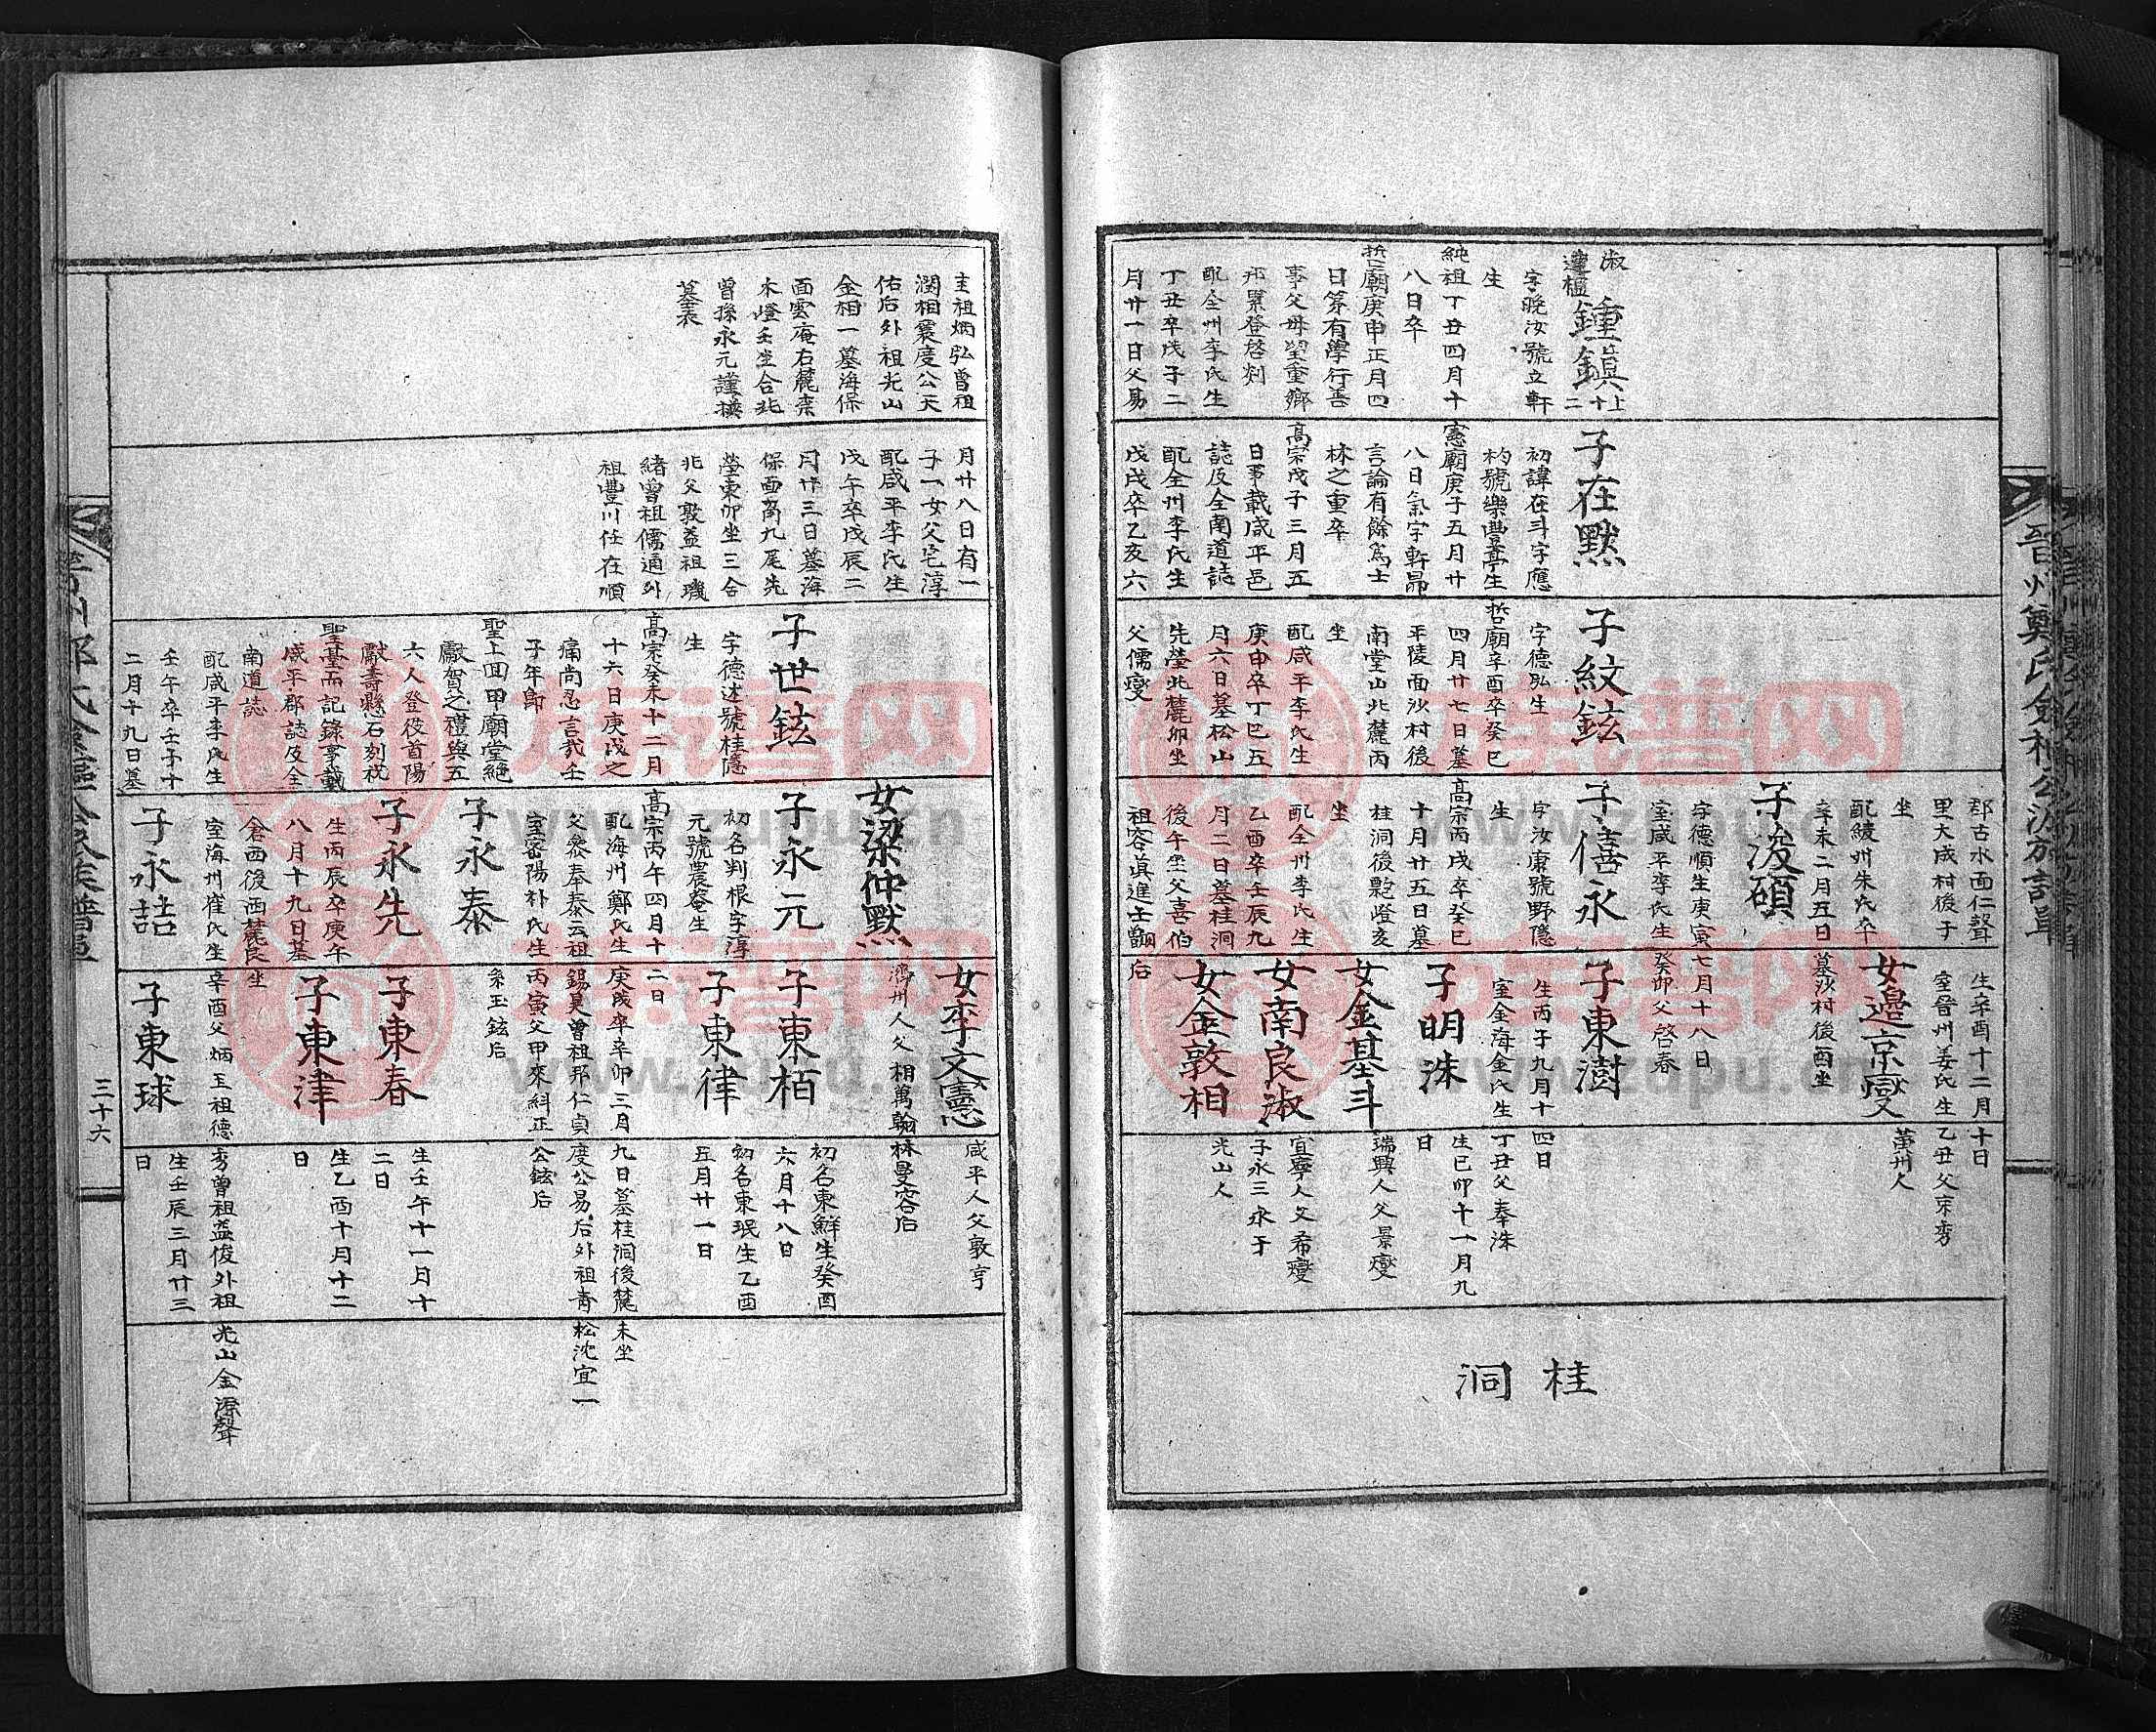 淑
鍾鎭
上十二
字晚汝號立軒
生
純祖丁丑四月十
八日卒
哲廟庚申正月四
日第有學行善
事父母望重鄉
邦累登啓剡
配全州李氏生
丁丑卒戊子二
月廿一日父易
子在默
初諱在斗字應
杓號樂豐亭生
憲廟庚子五月廿
八日氣宇軒昻
言論有餘爲士
林之重卒
高宗戊子三月五
日事載咸平邑
誌及全南道誌
配全州李氏生
戊戌卒乙亥六
子紋鉉
字德弘生
哲廟辛酉卒癸巳
四月廿七日墓
平陵面沙村後
南堂山北麓丙
坐
配咸平李氏生
庚申卒丁巳五
月六日墓松山
先塋北麓卯坐
父儒燮
郡古水面仁聲
里大成村後子
坐
配綾州朱氏卒
辛未二月五日
墓沙村後酉坐
子浚碩
字德順生庚寅七月十八日
室咸平李氏生癸卯父啓春
子僐永
字汝康號野隱
生
高宗丙戌卒癸巳
十月廿五日墓
桂洞後亥
坐
配全州李氏生
乙酉卒壬辰九
月二日墓桂洞
後午坐父喜伯
祖容眞進士嗣后
生辛酉十二月十日
室晉州姜氏生乙丑父京秀
女邉京燮
子東澍
生丙子九月十四日
室金海金氏生丁丑父奉洙
子明洙
生己卯十一月九
日
女金基斗
瑞興人父景燮
女南良淑
宜寧人父希燮
子永三 永于
女金敦相
光山人
桂洞
圭祖炳弘曾祖
潤相襄度公天
佑后外祖光山
金相一墓海保
面雲庵右麓
木嶝壬坐合兆
曾孫永元謹撰
墓表
月廿八日有一
子一女父宅淳
配咸平李氏生
戊午卒戊辰二
月廿三日墓海
保面角九尾先
塋東卯坐三合
兆父敦益祖璣
緖曾祖儒通外
祖豐川任在順
子世鉉
字德述號桂隱
生
高宗癸未十二月
十六日庚戌之
痛尚忍言哉壬
子年歸
聖上回甲廟堂總
獻賀之禮與五
六人登役首陽
獻壽縣石刻祝
聖臺而記錄事載
咸平郡誌及全
南道誌
配咸平李氏生
壬午卒壬子十
二月十九日墓
女梁仲默
濟州人父相萬翰林曼容后
子永元
初名判根字淳
元號農菴生
高宗丙午四月十二日
配海州鄭氏生庚戌卒辛卯三月九日墓桂洞後麓未坐
父奉泰祖錫昊曾祖邦仁貞度公易后外祖靑松沈宜一
室密陽朴氏生丙寅父甲來糾正公鉉后
子永泰
系玉鉉后
子永先
生丙辰卒庚午
八月十九日墓
倉西後西麓艮坐
子永喆
室海州崔氏生辛酉父炳玉祖德秀曾祖益俊外祖光山金源聲
女李文憲
咸平人父敦亨
子東栢
初名東鮮生癸酉
六月十八日
子東律
初名東珉生乙酉
五月廿一日
子東春
生壬午十一月十
二日
子東津
生乙酉十月十二
日
子東球
生壬辰三月廿三
日
三十六
族谱网
www.zupu.cn